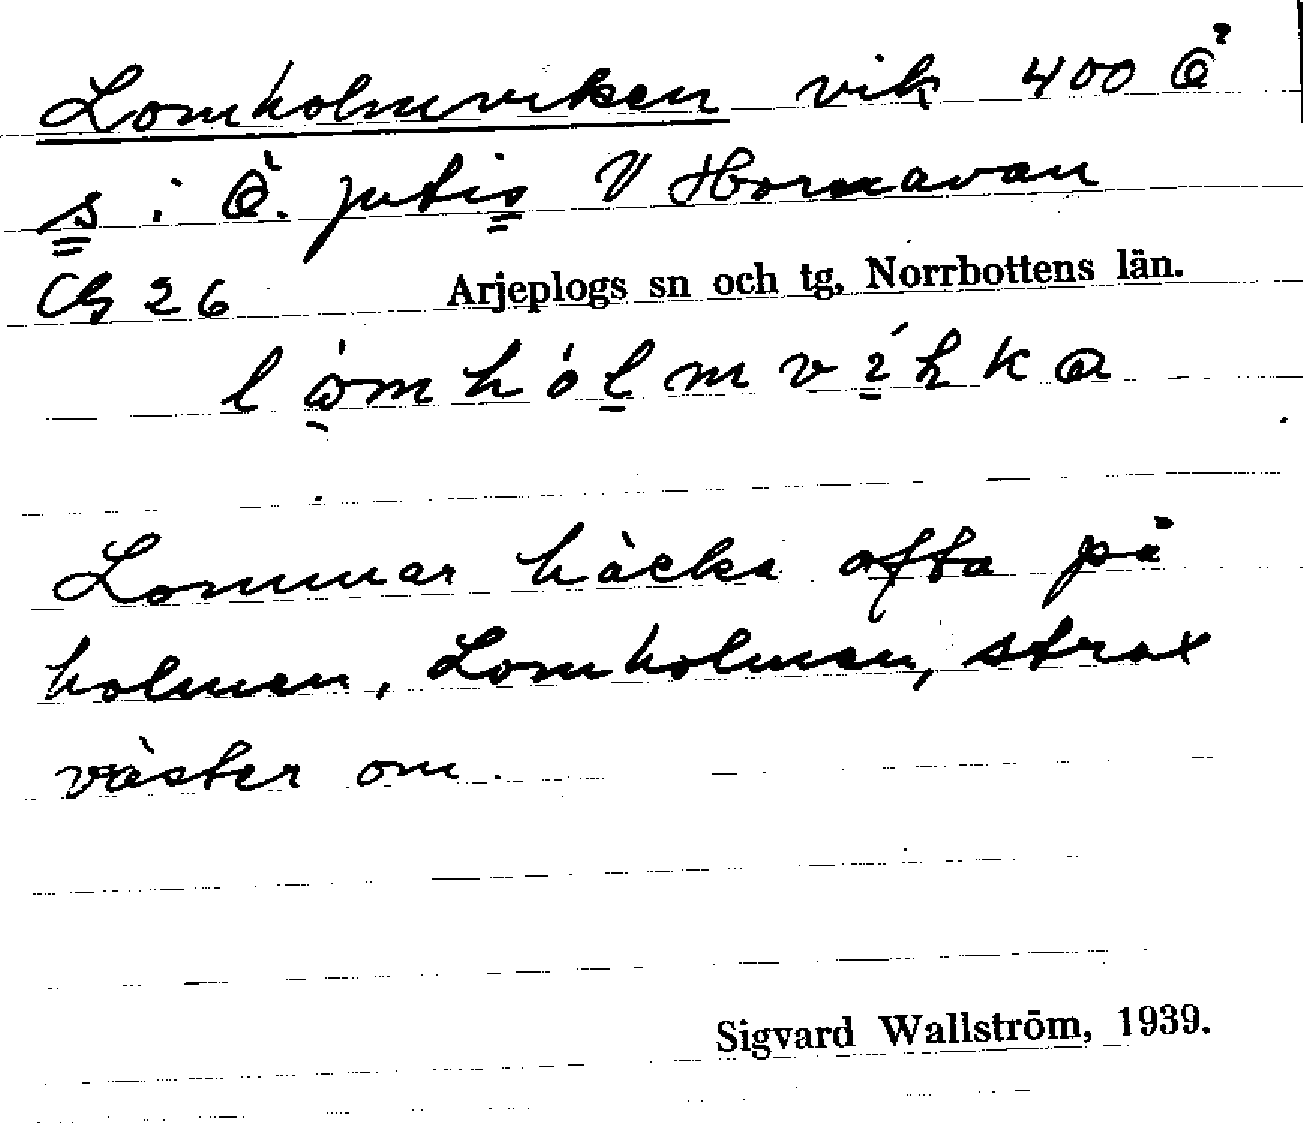 Lomholmviken vik 400 Ö
s i Ö. Jutis V Hornavan
Cb 26 Arjeplogs sn och tg, Norrbottens län.
Lommar häcka ofta på
holmen, Lomholmen, strax
väster om.
Sigvard Wallström, 1939.